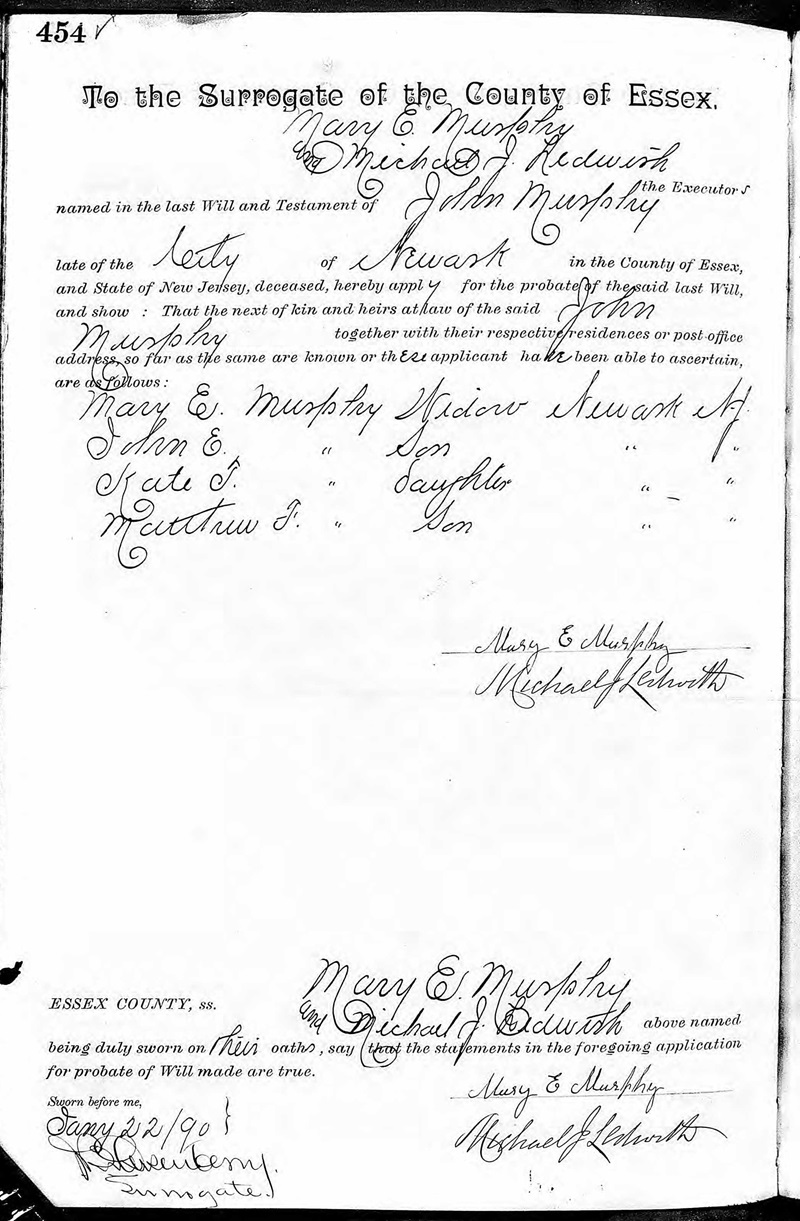 454 ✓
To the Surrogate of the County of Essex.
Mary E. Murphy
and Michael J. Ledwith
the Executors
named in the last Will and Testament of John Murphy
late of the City of Newark in the County of Essex,
and State of New Jersey, deceased, hereby apply for the probate of the said last Will,
and show : That the next of kin and heirs at law of the said John
Murphy together with their respective residences or post-office
address, so far as the same are known or these applicant have been able to ascertain,
are as follows :
Mary E. Murphy Widow Newark N.J.
John E. " Son " "
Kate F. " daughter " "
Matthew F. " Son " "
Mary E Murphy
Michael J Ledwith
Mary E. Murphy
ESSEX COUNTY, ss.
and Michael J. Ledwith above named
being duly sworn on their oaths, say that the statements in the foregoing application
for probate of Will made are true.
Mary E Murphy
Sworn before me,
Jany 22/90
Michael J Ledwith
Surrogate.